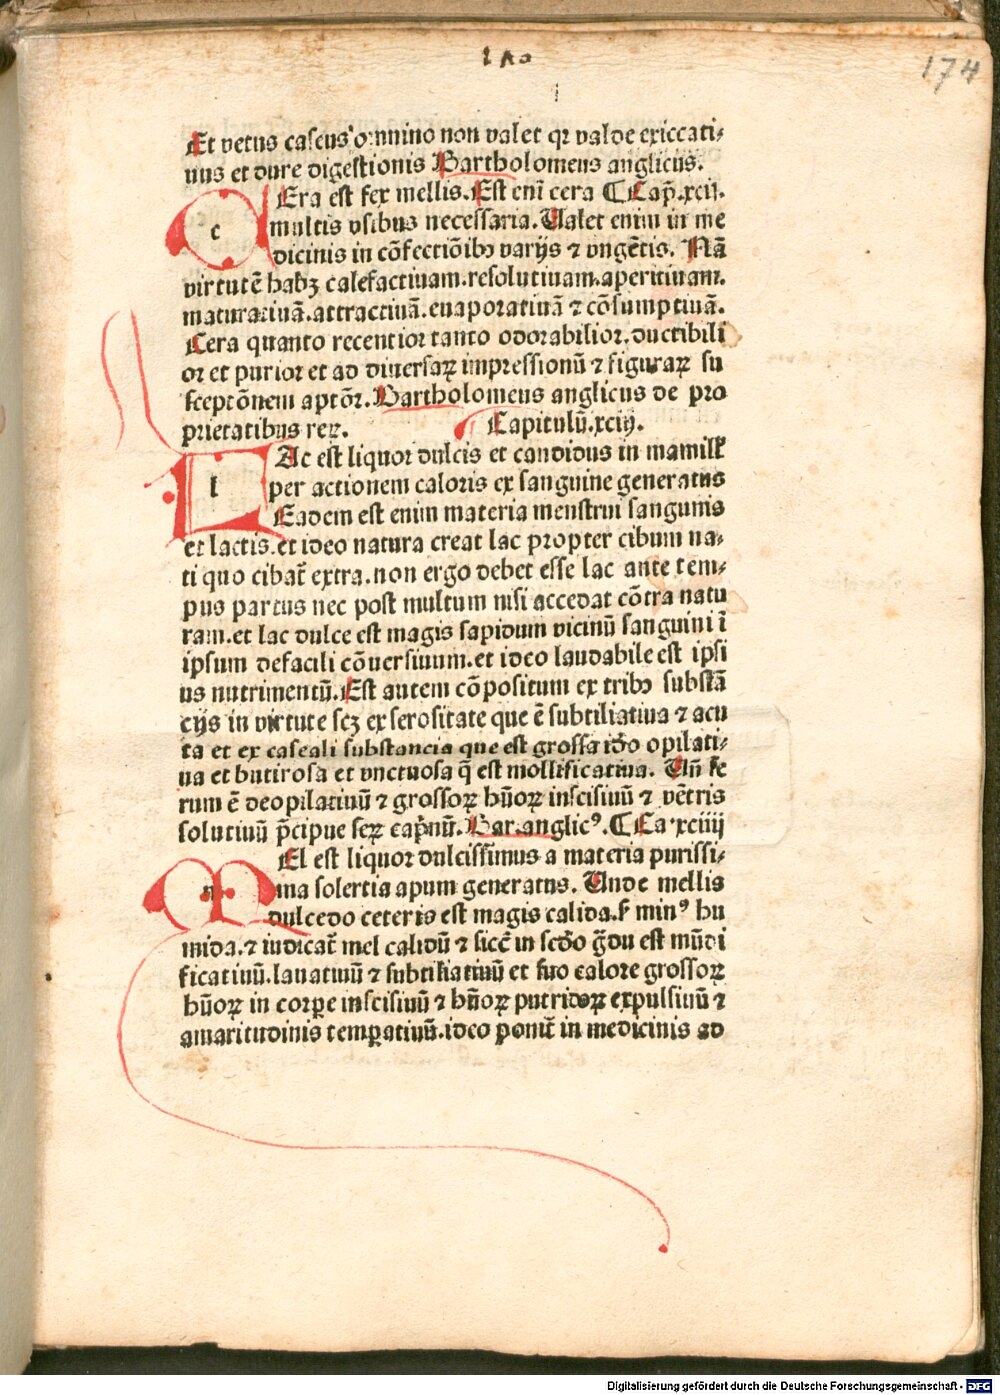 174
Et vetus caseus omnino non valet qꝛ valde exiccati⸗
uus et dure digestionis Bartholomeus anglicus.
Era est fex mellis. Est eni cera ⸿ Cap̄. xcij.
c
multis vsibus necessaria. Ualet enim in me
dicinis in cōfectiōibꝰ varijs ⁊ vngētis. Nā
virtutē habꝫ calefactiuam. resolutiuam. aperitiuam.
maturatiuā. attractiuā. euaporatiuā ⁊ cōsumptiuā.
Cera quanto recentior tanto odorabilior. ductibili
or et purior et ad diuersaꝝ impressionū ⁊ figuraꝝ su
sceptōnem aptōr. Bartholomeus anglicus de pro
prietatibus reꝝ. Capitulū. xciij.
Ac est liquor dulcis et candidus in mamill
l
per actionem caloris ex sanguine generatus
Eadem est enim materia menstrui sanguinis
et lactis. et ideo natura creat lac propter cibum na⸗
ti quo cibat̄ extra. non ergo debet esse lac ante tem⸗
pus partus nec post multum nisi accedat cōtra natu
ram. et lac dulce est magis sapidum vicinū sanguini ī
ipsum defacili cōuersiuum. et ideo laudabile est ipsi
us nutrimentū. Est autem cōpositum ex tribꝰ substā
cijs in virtute scꝫ ex serositate que ē subtiliatiua ⁊ acu
ta et ex caseali substancia que est grossa idō opilati⸗
ua et butirosa et vnctuosa q̄ est mollificatiua. Un̄ se
rum ē deopilatiuū ⁊ grossoꝝ hūoꝝ inscisiuū ⁊ vētris
solutiuū p̄cipue seꝝ cap̄nū. Bar. anglicꝰ. ⸿ Ca. xciiij
El est liquor dulcissimus a materia purissi⸗
m
ma solertia apum generatus. Unde mellis
dulcedo ceteris est magis calida. ſꝫ minꝰ hu
mida. ⁊ iudicat̄ mel calidū ⁊ siccū in scdō g̃du est mūdi
ficatiuū. lauatiuū ⁊ subtiliatiuū et suo calore grossoꝝ
hūoꝝ in corꝑe inscisiuū ⁊ hūoꝝ putridoꝝ expulsiuū ⁊
amaritudinis temꝑatiuū. ideo ponit̄ in medicinis ad
Digitalisierung gefördert durch die Deutsche Forschungsgemeinschaft - DFG